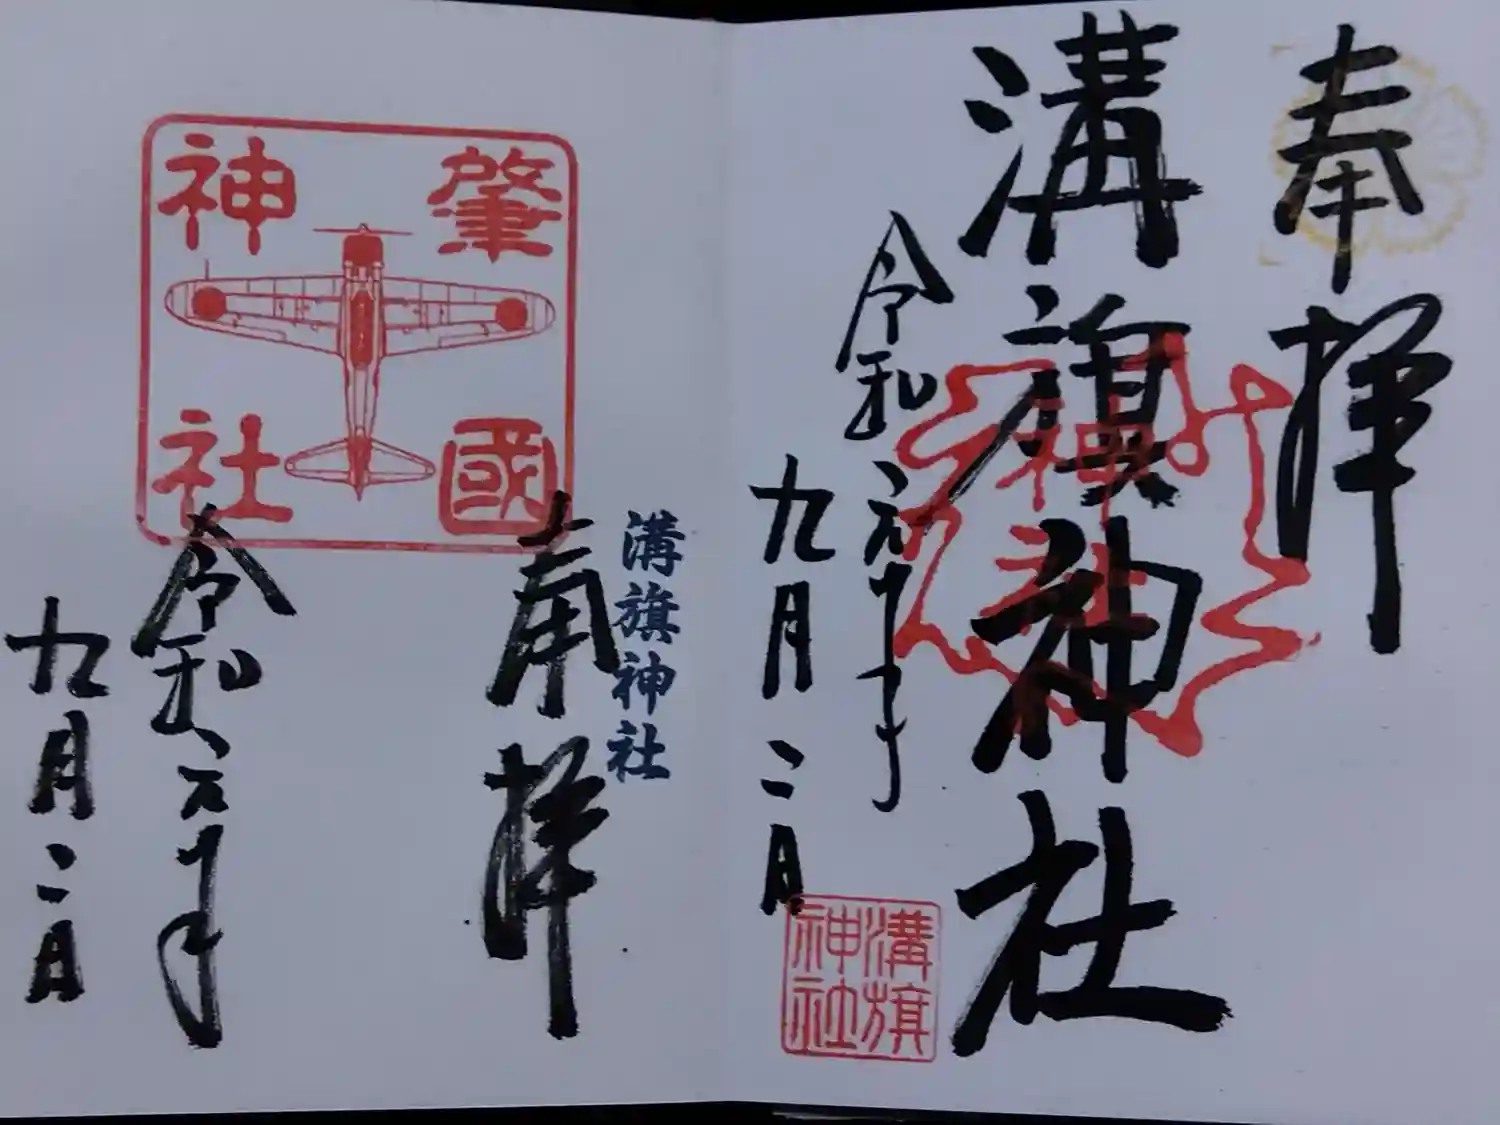 奉拝
溝旗神社
神社
令和元年
九月二日
溝旗神社
溝旗神社
奉拝
肇國神社
令和元年
九月二日